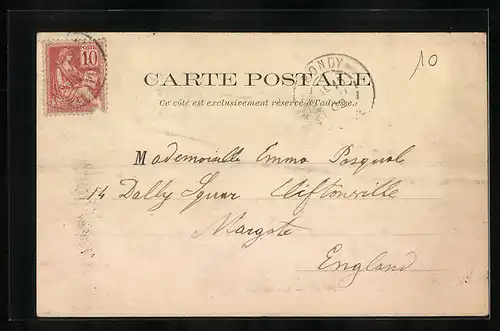 10
10
CARTE POSTALE
Ce côté est exclusivement réservé à l'adresse.
Mademoiselle Emma Pasquale
14 Dally Squar Cliftonville
Margate
England